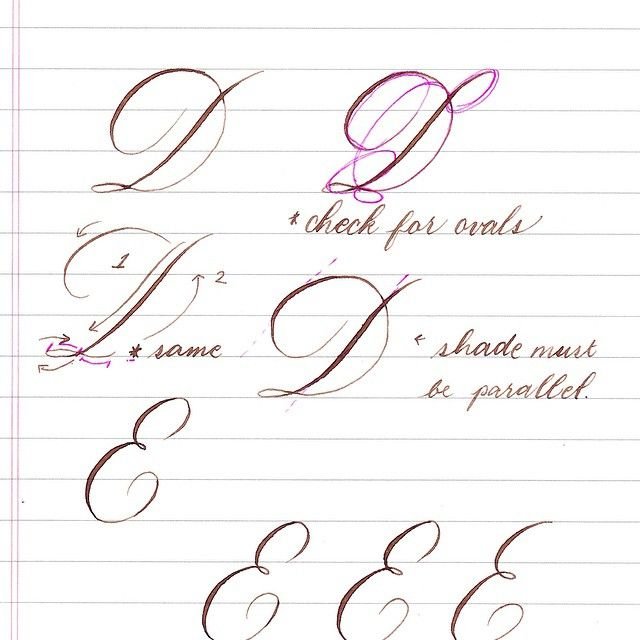 D D
*check for ovals
1 2
* same
D
shade must
be parallel.
E
E E E